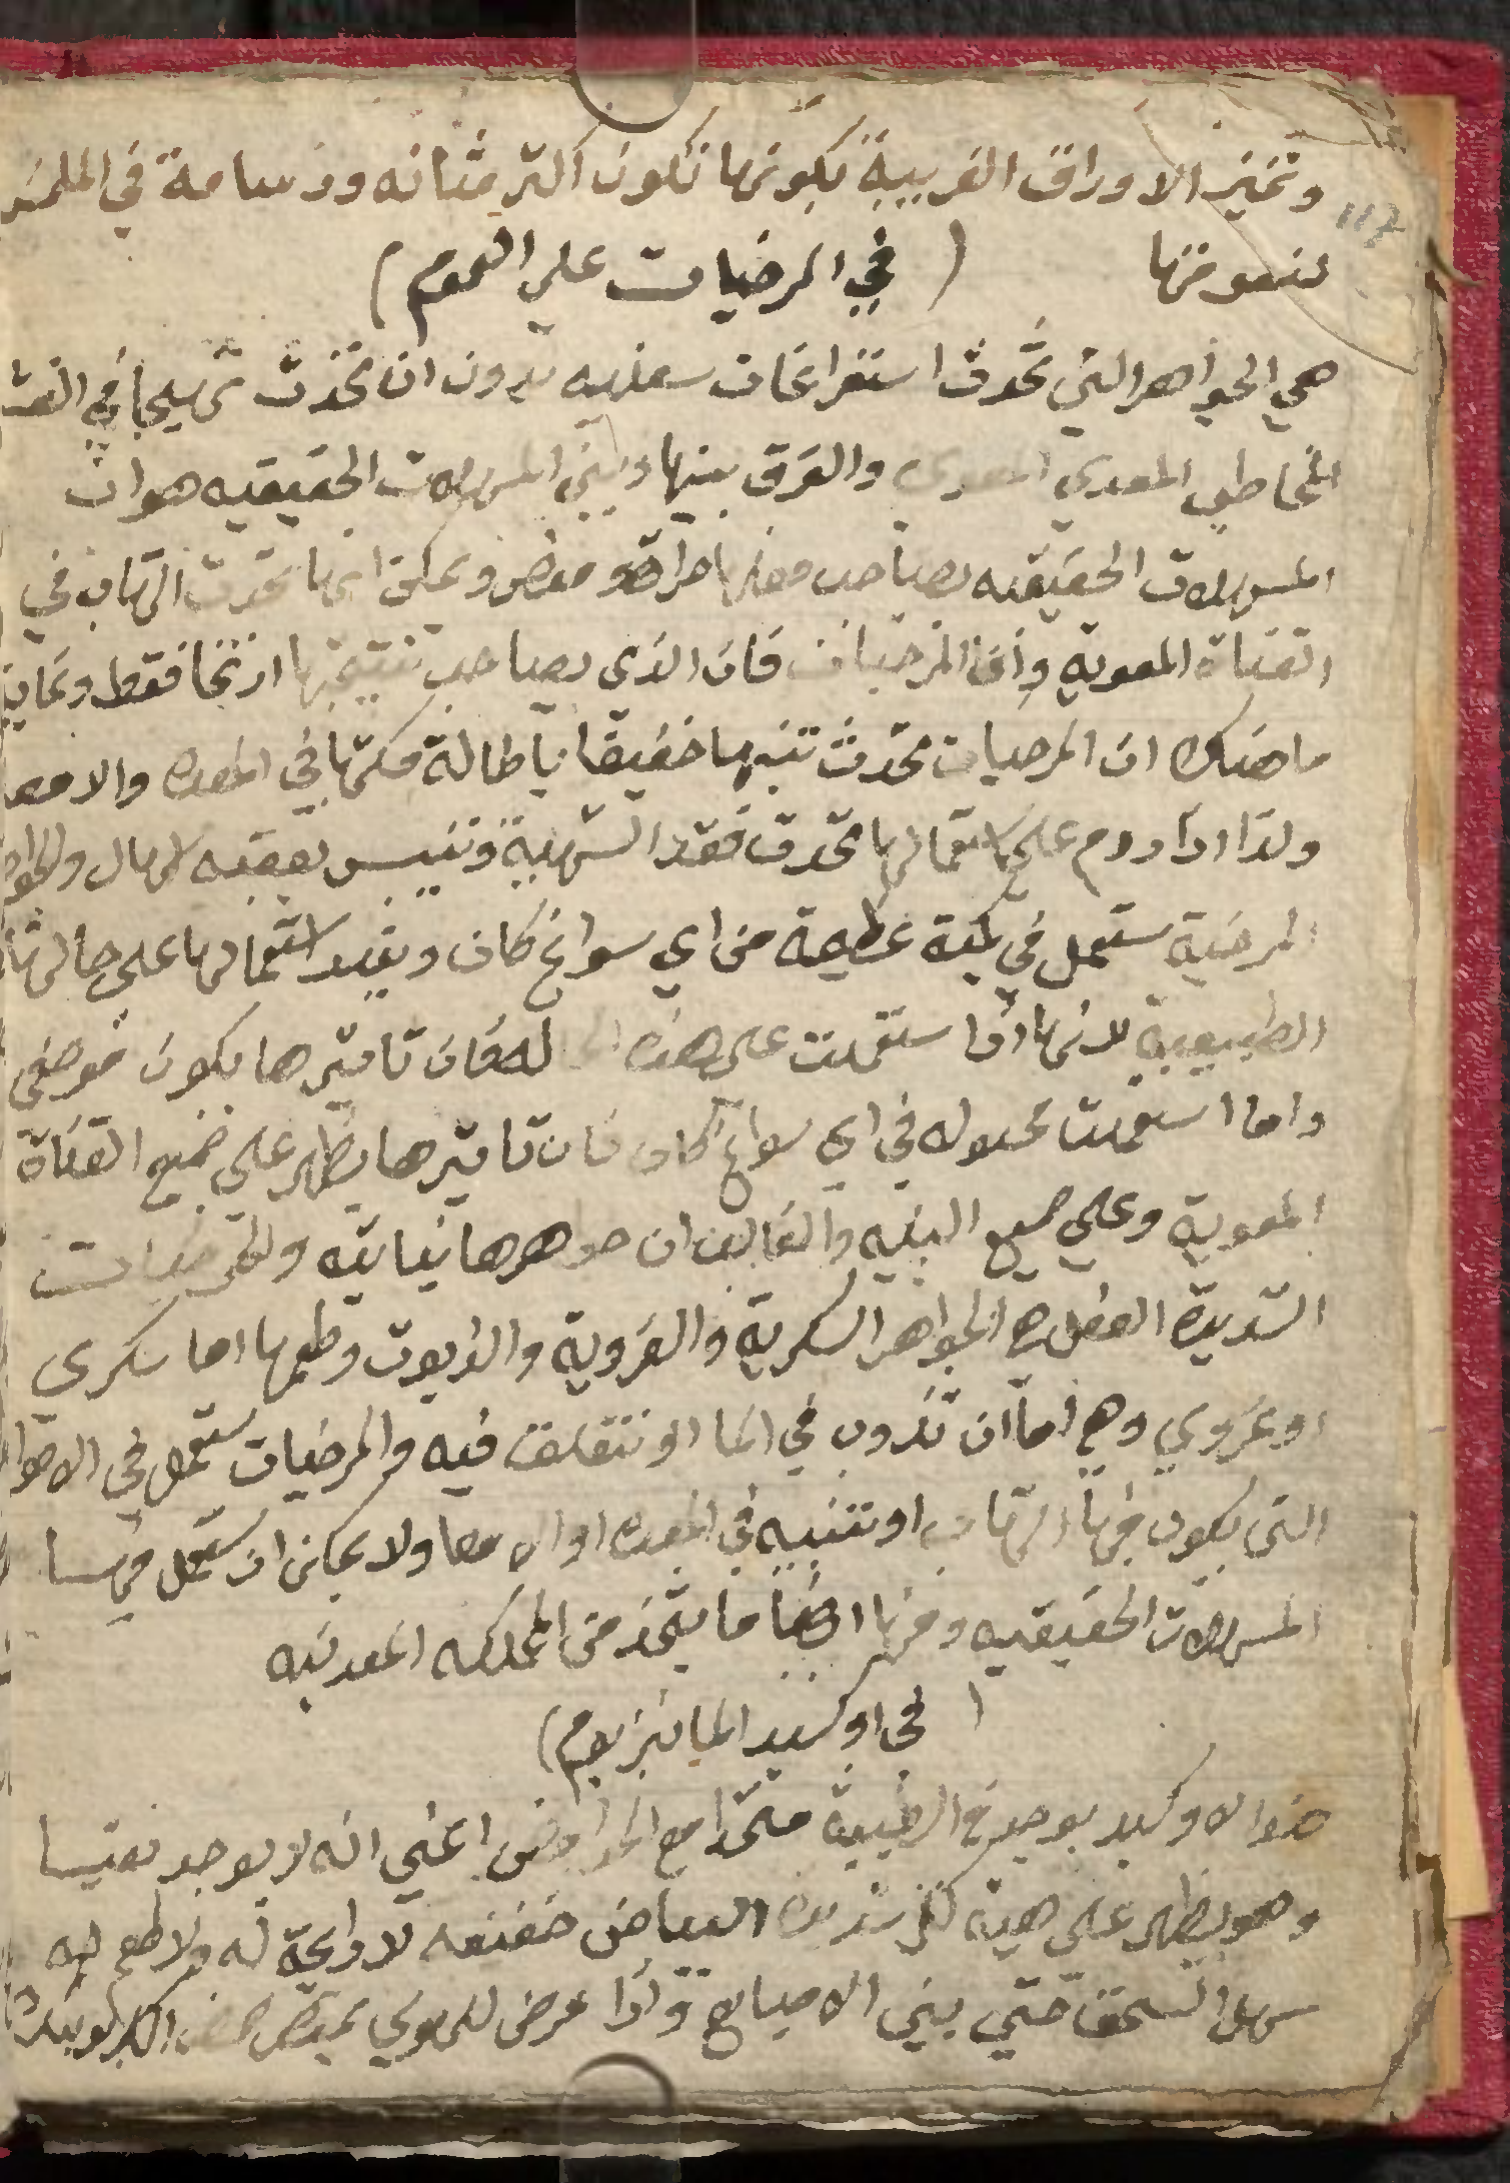 وتميز الاوراق الغريبة بكونها تكون اكثر متانه ودسامة في الملمس
لنعومتها ( في المرخيات علي العموم )
هي الجواهر التي تحدث استفراغات سفليه بدون ان تحدث تهيجا في الغشا
المخاطي المعدي المعوي والفرق بينها وبين المسهلات الحقيقيه هو ان
المسهلات الحقيقيه يصاحب فعلها حرافة ومغص ويمكن انها تحدث التهاب في
القناة المعوية واما المرخيات فان الذي يصاحب نتيجتها ارتخا فقط وغاية
ما هناك ان المرخيات تحدث تنبها خفيفا باطالة مكثها في المعده والامعا
ولذا اذا دووم علي استعمالها تحدث فقد الشهية وتيبس يعقبه اسهال والجواهر
المرخية تستعمل في كمية عظيمة من اي سواغ كان ويفيد استعمالها علي حالتها
الطبيعية لانها اذا استعملت علي هذه الحاله فان تاثيرها يكون موضعي
واما استعملت محلوله في اي سواغ كان فان تاثيرها يظهر علي جميع القناة
المعوية وعلي جميع البنيه والغالب ان جواهرها نباتيه والمرخيات
الشديدة الفعل هي الجواهر السكرية والغروية والزيوت وطعمها اما سكري
او غروي وهي اما ان تذوب في الما او تتعلق فيه والمرخيات تستعمل في الاحوال
التي يكون فيها التهاب او تنبيه في المعده او الامعا ولا يمكن ان تستعمل فيها
المسهلات الحقيقيه ومنها ايضا ما يتخذ من المملكه المعدنيه
( في اوكسيد المانيزيوم )
هذا الاوكسيد يوجد في الطبيعة متحدا مع الحوامض اعني انه لا يوجد نقيا
وهو يظهر علي هيئة كتل شديدة البياض خفيفه لا رايحة له ولا طعم له
سهل السحق حتي بين الاصابع واذا عرض للهوي يمتص حمض الكربونيك